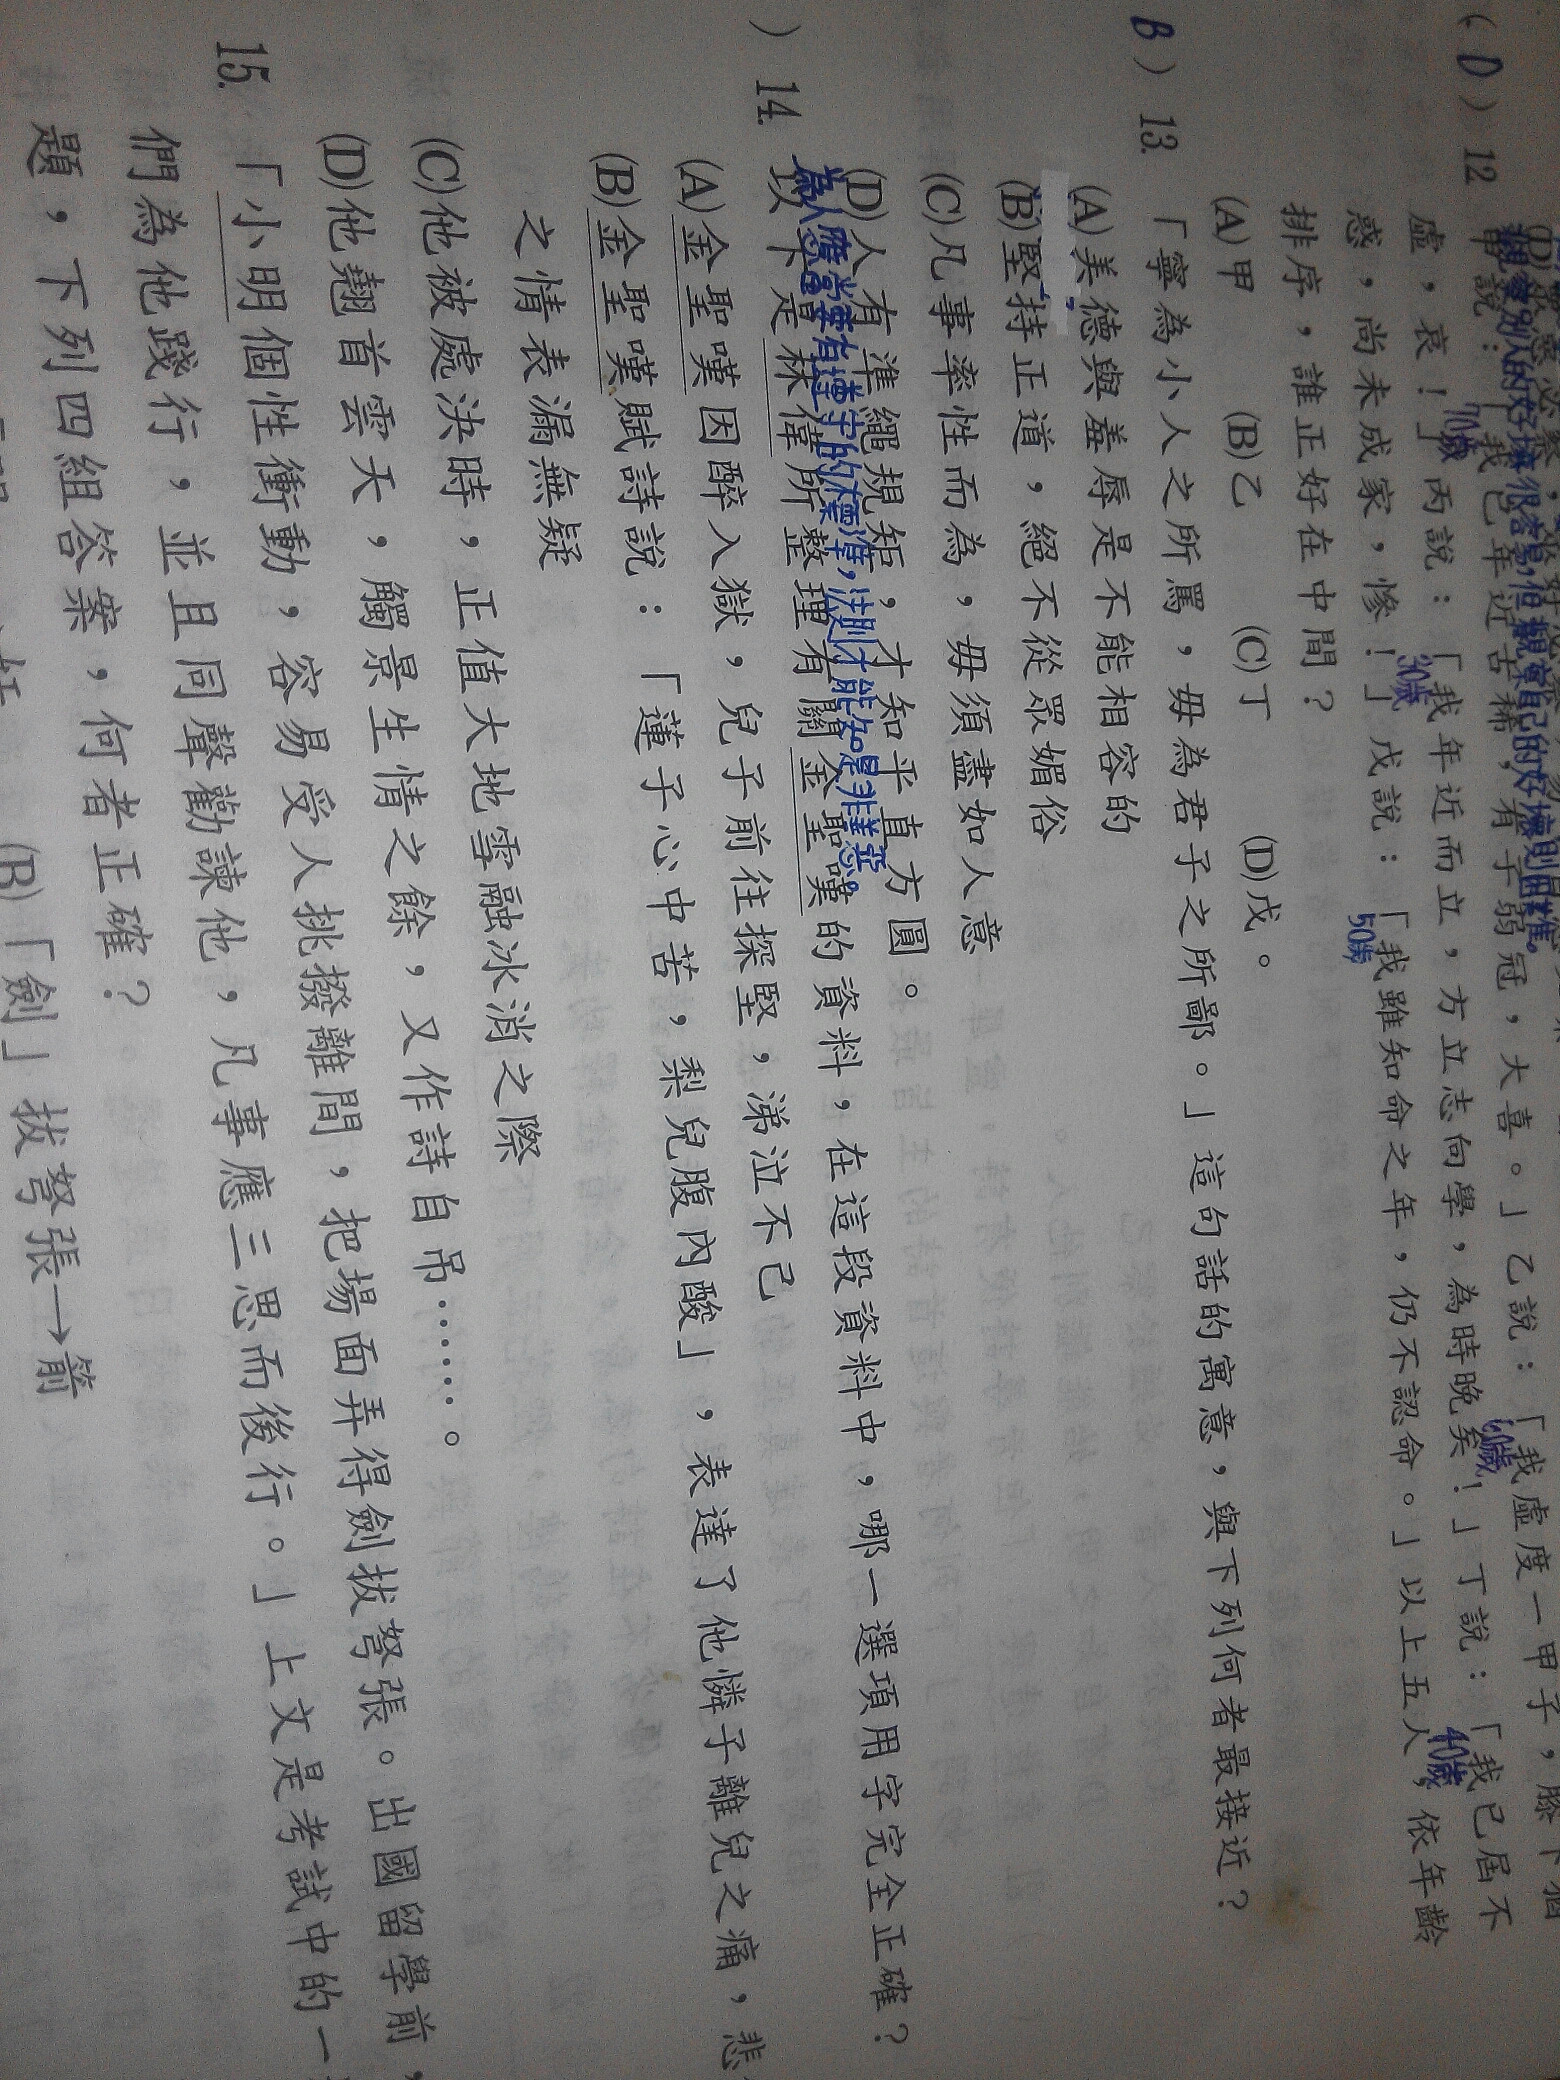 ( D ) 12
甲說：「我已年近古稀，有子弱冠，大喜。」乙說：「我虛度一甲子，膝下猶
虛，哀！」丙說：「我年近而立，方立志向學，為時晚矣！」丁說：「我已屆不
惑，尚未成家，慘！」戊說：「我雖知命之年，仍不認命。」以上五人，依年齡
排序，誰正好在中間？
70歲
60歲
30歲
40歲
50歲
(A)甲 (B)乙 (C)丁 (D)戊。
B ) 13. 「寧為小人之所罵，毋為君子之所鄙。」這句話的寓意，與下列何者最接近？
(A)美德與羞辱是不能相容的
(B)堅持正道，絕不從眾媚俗
(C)凡事率性而為，毋須盡如人意
(D)人有準繩規矩，才知乎直方圓。
為人應當要有遵守的標準，法則才能知是非善惡。
) 14. 以下是林偉所整理有關金聖嘆的資料，在這段資料中，哪一選項用字完全正確？
(A)金聖嘆因醉入獄，兒子前往探堅，涕泣不已
(B)金聖嘆賦詩說：「蓮子心中苦，梨兒腹內酸」，表達了他憐子離兒之痛，悲
之情表漏無疑
(C)他被處決時，正值大地雪融冰消之際
(D)他翹首雲天，觸景生情之餘，又作詩自吊……。
15. 「小明個性衝動，容易受人挑撥離間，把場面弄得劍拔弩張。出國留學前，
們為他踐行，並且同聲勸諫他，凡事應三思而後行。」上文是考試中的一
題，下列四組答案，何者正確？
(B)「劍」拔弩張→箭